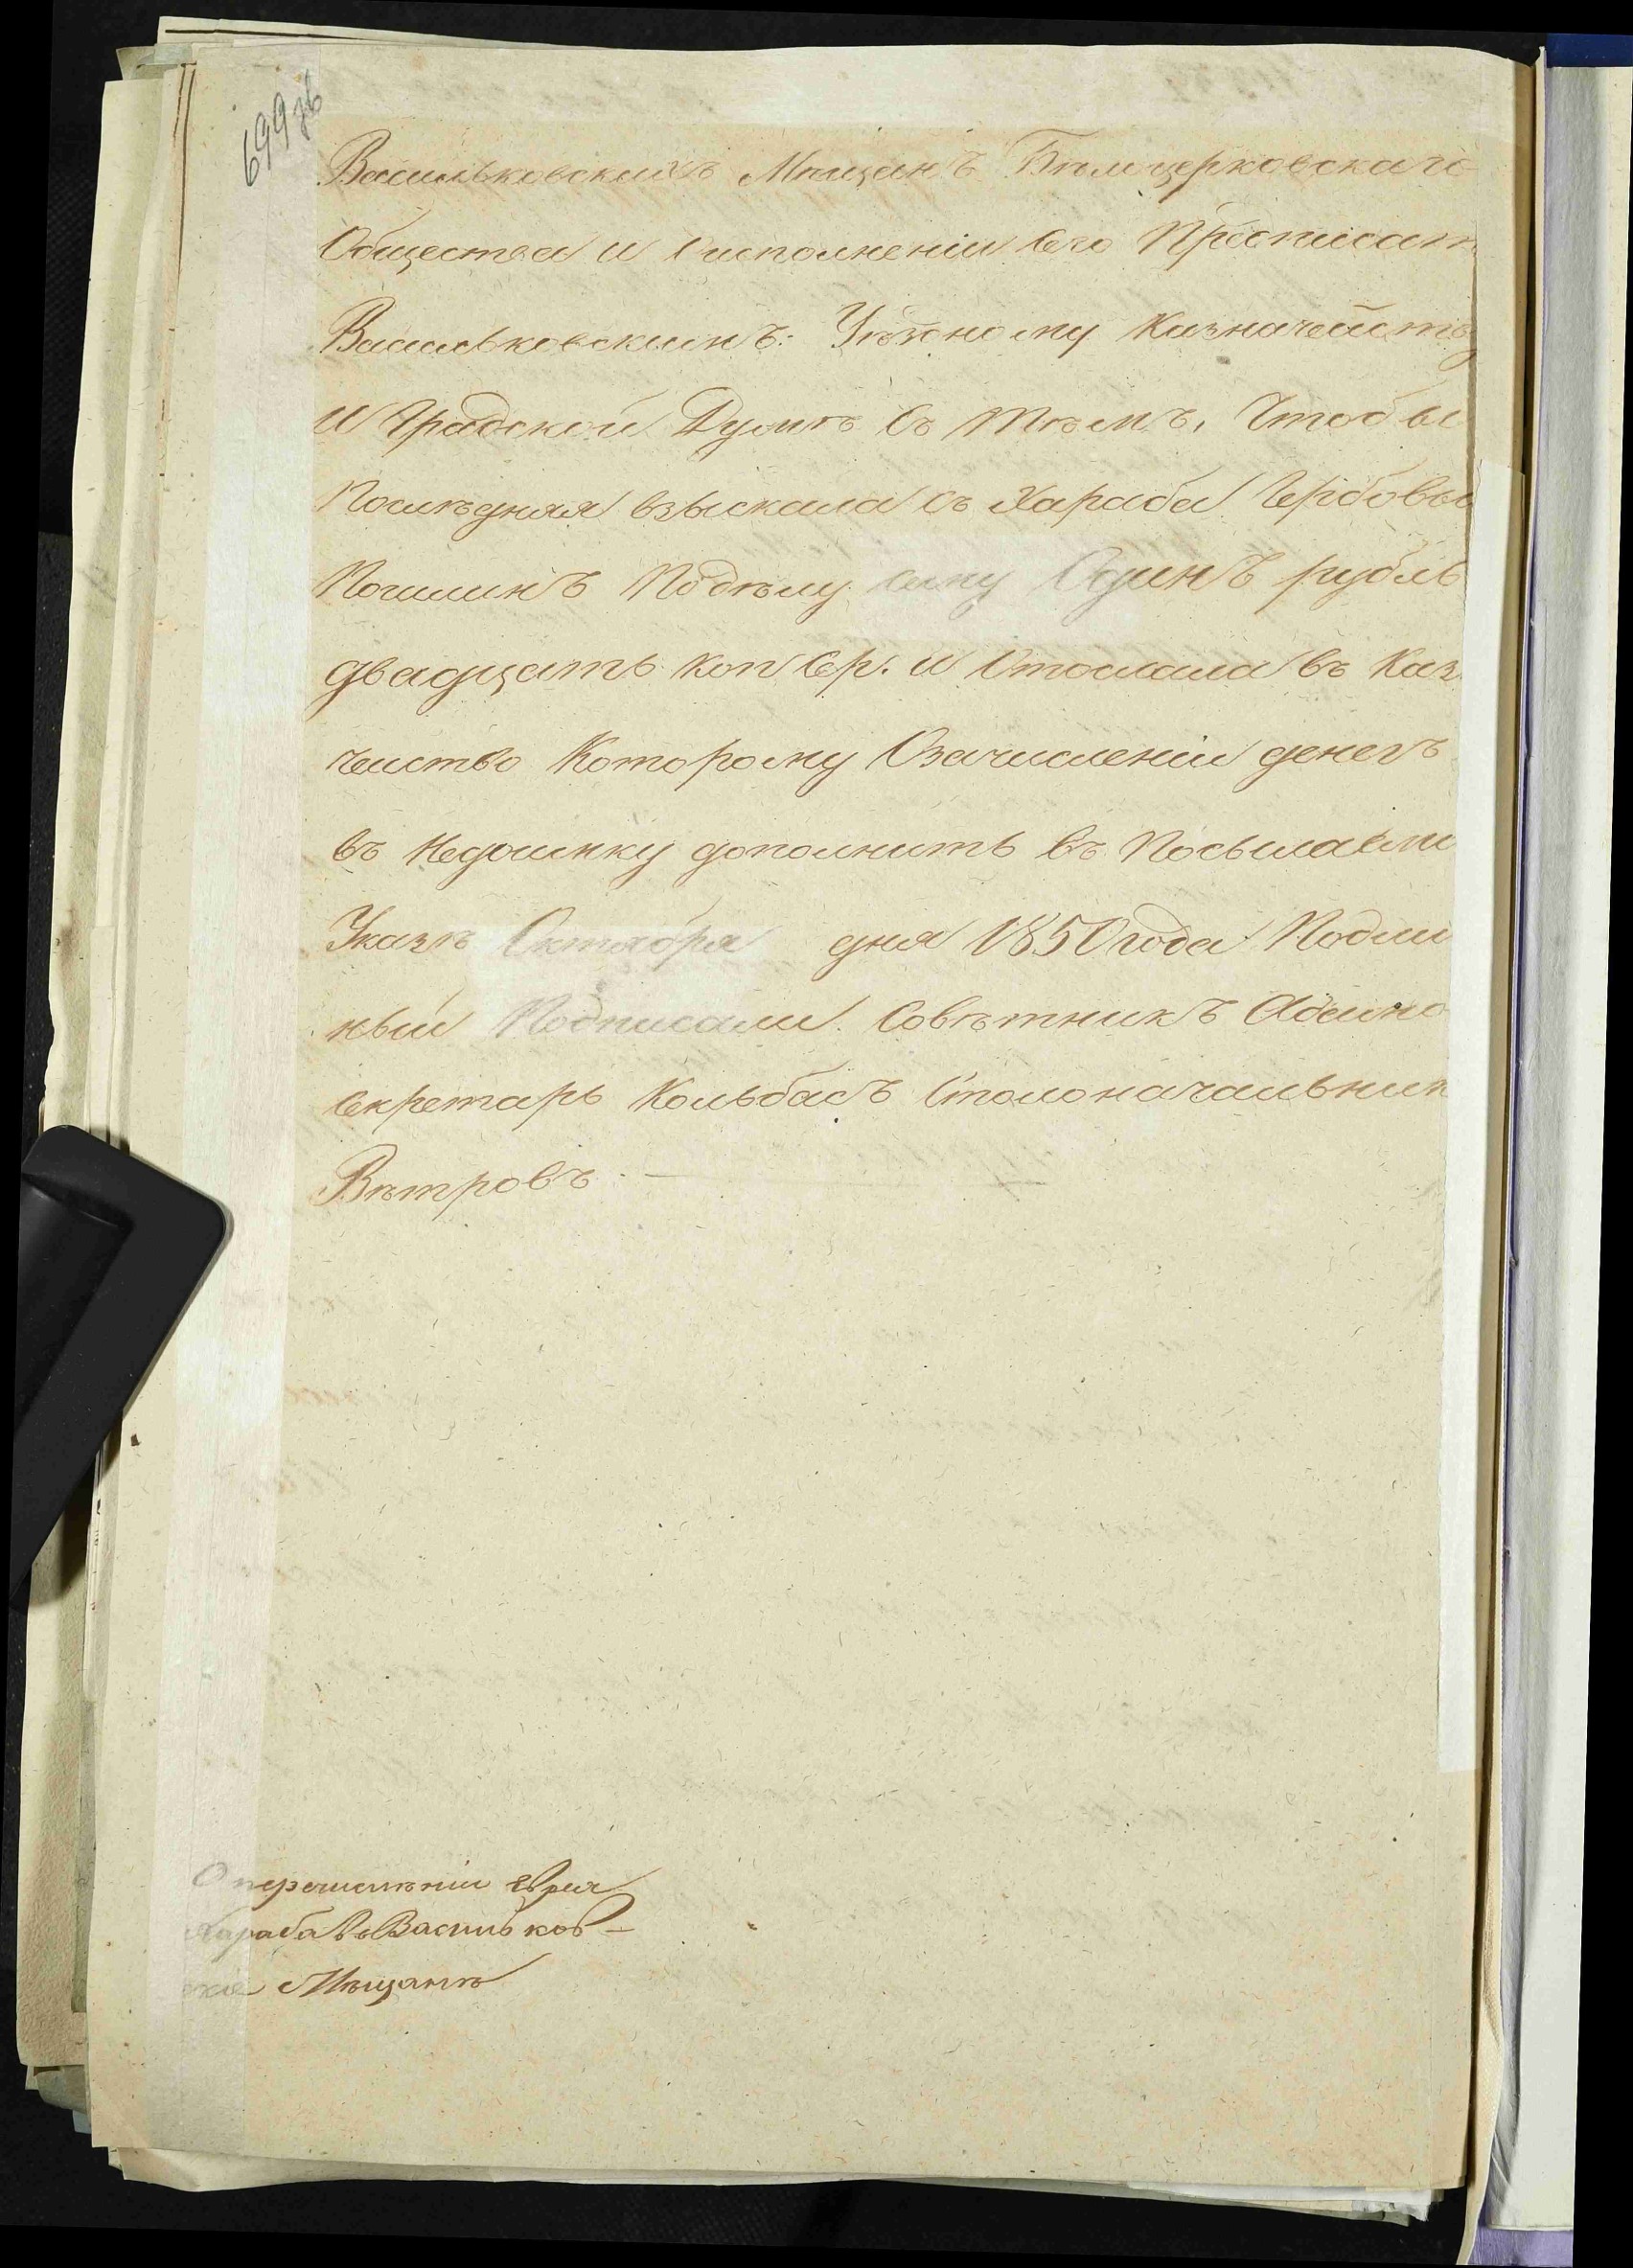 699 зв
Васильковскихъ Мѣщанъ Бѣлоцерковскаго
Общества и Оисполненіи Сего Предписать
Васильковскимъ: Уѣздному Казначейству
И Градской Думѣ Съ тѣмъ, Чтобы
Послѣдняя взыскала съ Хараба Гербовыхъ
Пошлинъ Подѣлу сему Одинъ рубль
двадцать коп Сер. и Отослала въ Каз
чейство Которому Озачисленіи денегъ
въ Недоимку дополнить въ Посылаемо
Указѣ Октября дня 1850 года Подлин
ный Подписали. Совѣтникъ
Секретарь Кольбасъ Столоначальник
Вѣтровъ —
О перечисленіи еврея
Хараба Въ Васильков-
скіе Мѣщанѣ